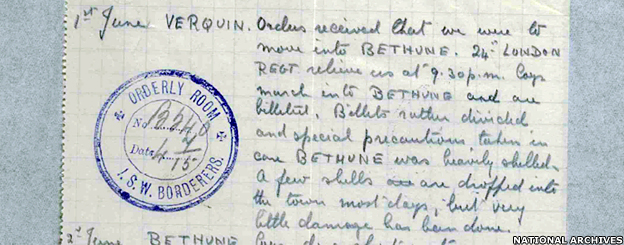 1st June VERQUIN. Orders received that we were to
move into BETHUNE. 24th LONDON
REGT relieve us at 9.30 p.m. Coys
march into BETHUNE and are
billeted. Billets rather divided
and special precautions taken in
case BETHUNE was heavily shelled.
A few shells are dropped into
the town most days, but very
little damage has been done.
2nd June BETHUNE
ORDERLY ROOM
No.
Date
1. S.W. BORDERERS.
NATIONAL ARCHIVES